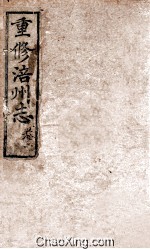 重修涪州志
ChaoXing.com